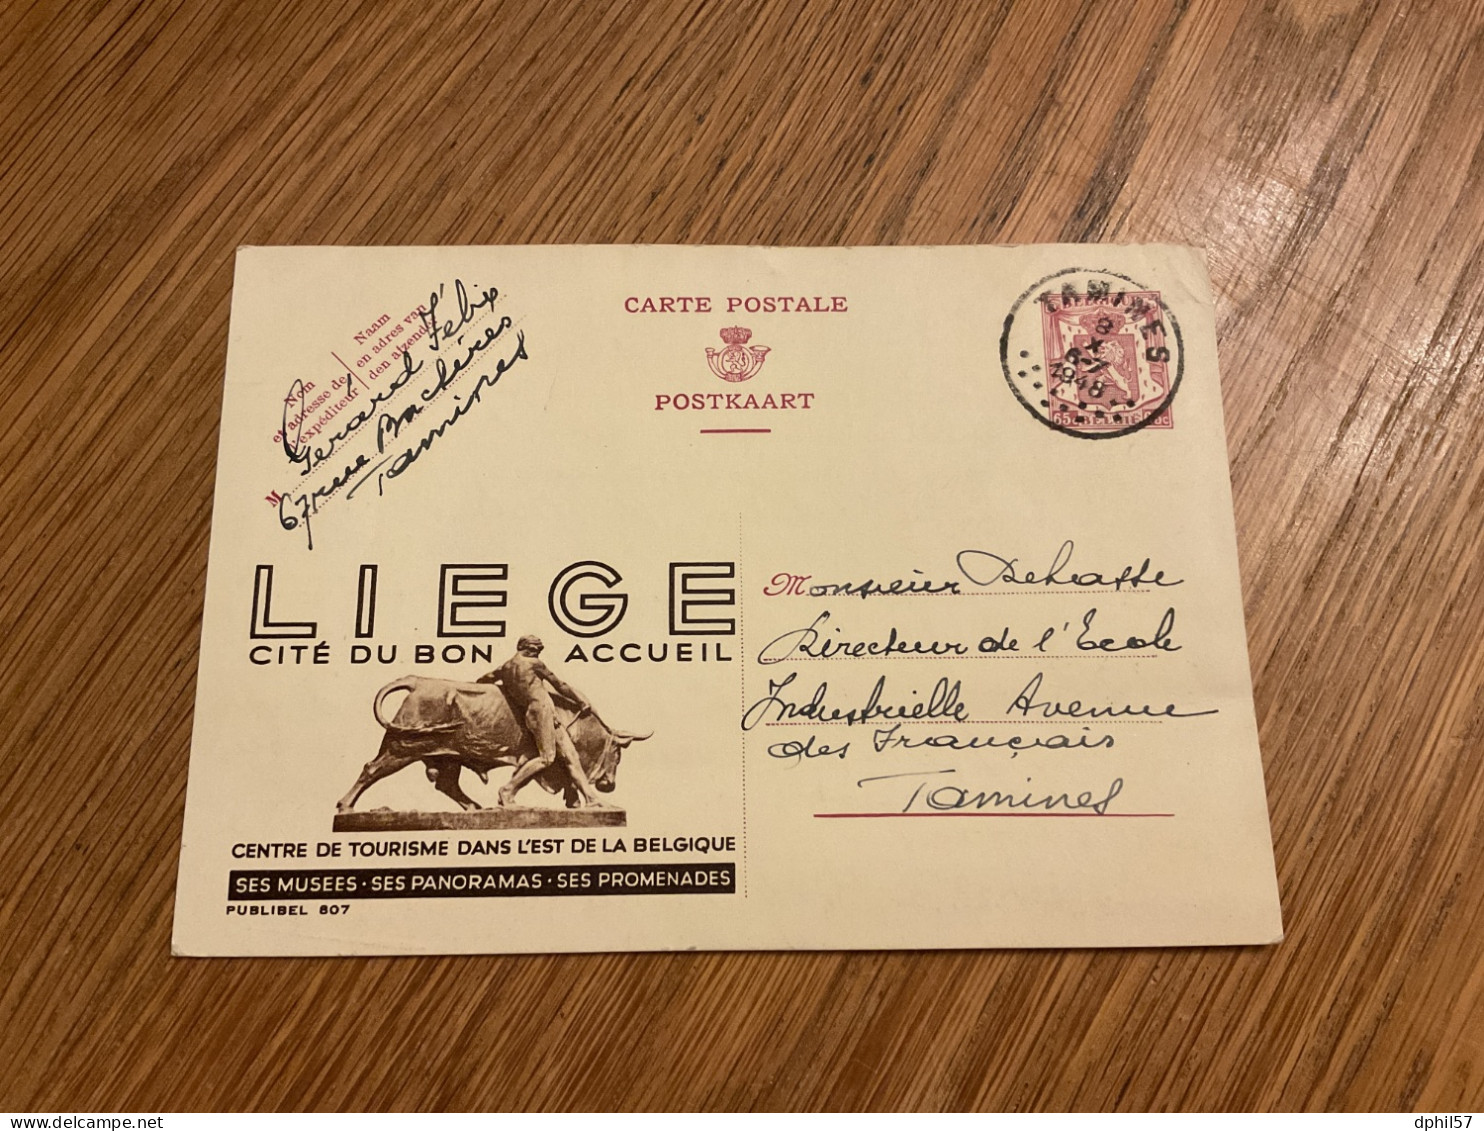 CARTE POSTALE
POSTKAART
Nom
et adresse de
l'expéditeur
Naam
en adres van
den afzender
M
Gérard Félix
67 rue Bachères
Tamines
TAMINES
8
X
6-7
1948
BELGIE
LIEGE
CITÉ DU BON ACCUEIL
CENTRE DE TOURISME DANS L'EST DE LA BELGIQUE
SES MUSEES · SES PANORAMAS · SES PROMENADES
PUBLIBEL 807
Monsieur Dehasse
Directeur de l'École
Industrielle Avenue
des Français
Tamines
delcampe.net
dphil57